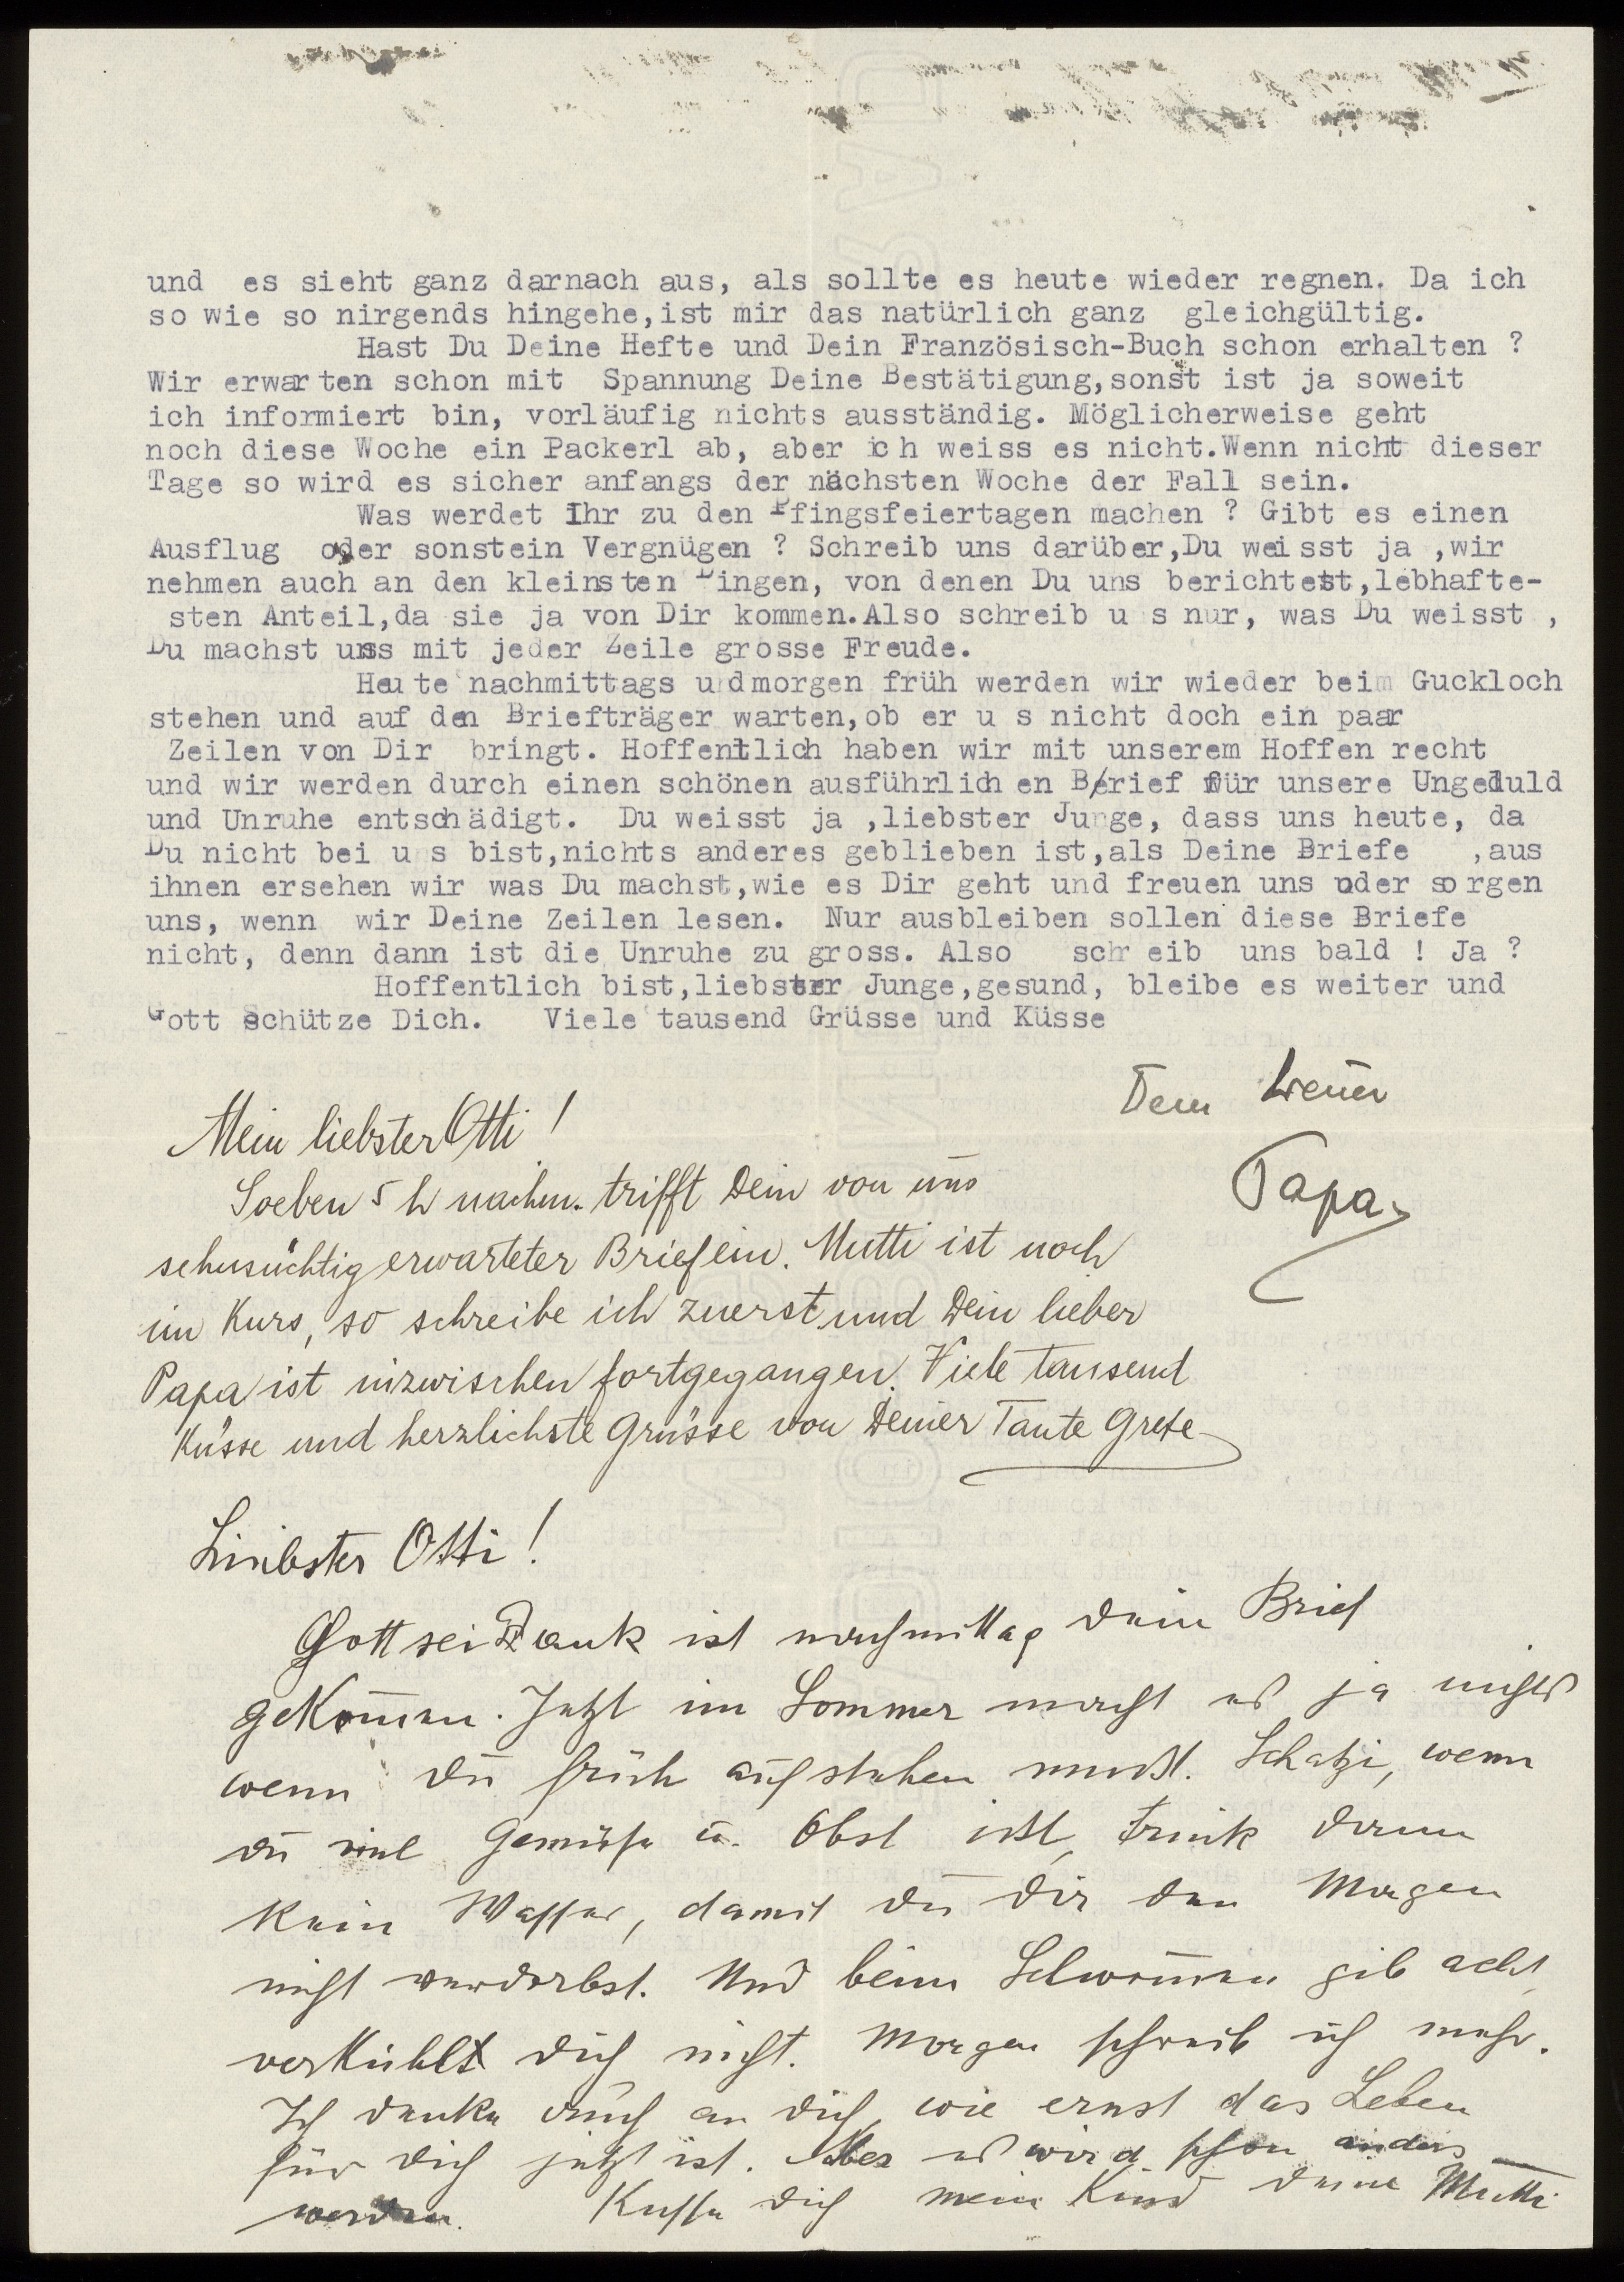 und es sieht ganz darnach aus, als sollte es heute wieder regnen. Da ich
so wie so nirgends hingehe,ist mir das natürlich ganz gleichgültig.
Hast Du Deine Hefte und Dein Französisch-Buch schon erhalten ?
Wir erwarten schon mit Spannung Deine Bestätigung,sonst ist ja soweit
ich informiert bin, vorläufig nichts ausständig. Möglicherweise geht
noch diese Woche ein Packerl ab, aber ich weiss es nicht.Wenn nicht dieser
Tage so wird es sicher anfangs der nächsten Woche der Fall sein.
Was werdet Ihr zu den Pfingsfeiertagen machen ? Gibt es einen
Ausflug oder sonstein Vergnügen ? Schreib uns darüber,Du weisst ja ,wir
nehmen auch an den kleinsten Dingen, von denen Du uns berichtest,lebhafte-
sten Anteil,da sie ja von Dir kommen.Also schreib u s nur, was Du weisst ,
Du machst uns mit jeder Zeile grosse Freude.
Heute nachmittags und morgen früh werden wir wieder beim Guckloch
stehen und auf den Briefträger warten,ob er u s nicht doch ein paar
Zeilen von Dir bringt. Hoffentlich haben wir mit unserem Hoffen recht
und wir werden durch einen schönen ausführlichen Brief für unsere Ungeduld
und Unruhe entschädigt. Du weisst ja ,liebster Junge, dass uns heute, da
Du nicht bei uns bist,nichts anderes geblieben ist,als Deine Briefe ,aus
ihnen ersehen wir was Du machst,wie es Dir geht und freuen uns oder sorgen
uns, wenn wir Deine Zeilen lesen. Nur ausbleiben sollen diese Briefe
nicht, denn dann ist die Unruhe zu gross. Also schreib uns bald ! Ja ?
Hoffentlich bist,liebster Junge,gesund, bleibe es weiter und
Gott schütze Dich. Viele tausend Grüsse und Küsse
Dein treuer
Papa
Mein liebster Otti !
Soeben 5 h nachm. trifft Dein von uns
sehnsüchtig erwarteter Brief ein. Mutti ist noch
im Kurs, so schreibe ich zuerst und Dein lieber
Papa ist inzwischen fortgegangen. Viele tausend
Küsse und herzlichste Grüsse von Deiner Tante Grete
Liebster Otti !
Gott sei Dank ist nachmittag dein Brief
gekommen. Jetzt im Sommer macht es ja nichts
wenn du früh aufstehen mußt. Schatzi, wenn
du viel Gemüse u. Obst ißt, trink dann
kein Wasser, damit du dir den Magen
nicht verdirbst. Und beim Schwimmen gib acht,
verkühlt dich nicht. Morgen schreib ich mehr.
Ich denke auch an dich, wie ernst das Leben
für dich jetzt ist. Aber es wird schon anders
werden. Küsse dich mein Kind deine Mutti